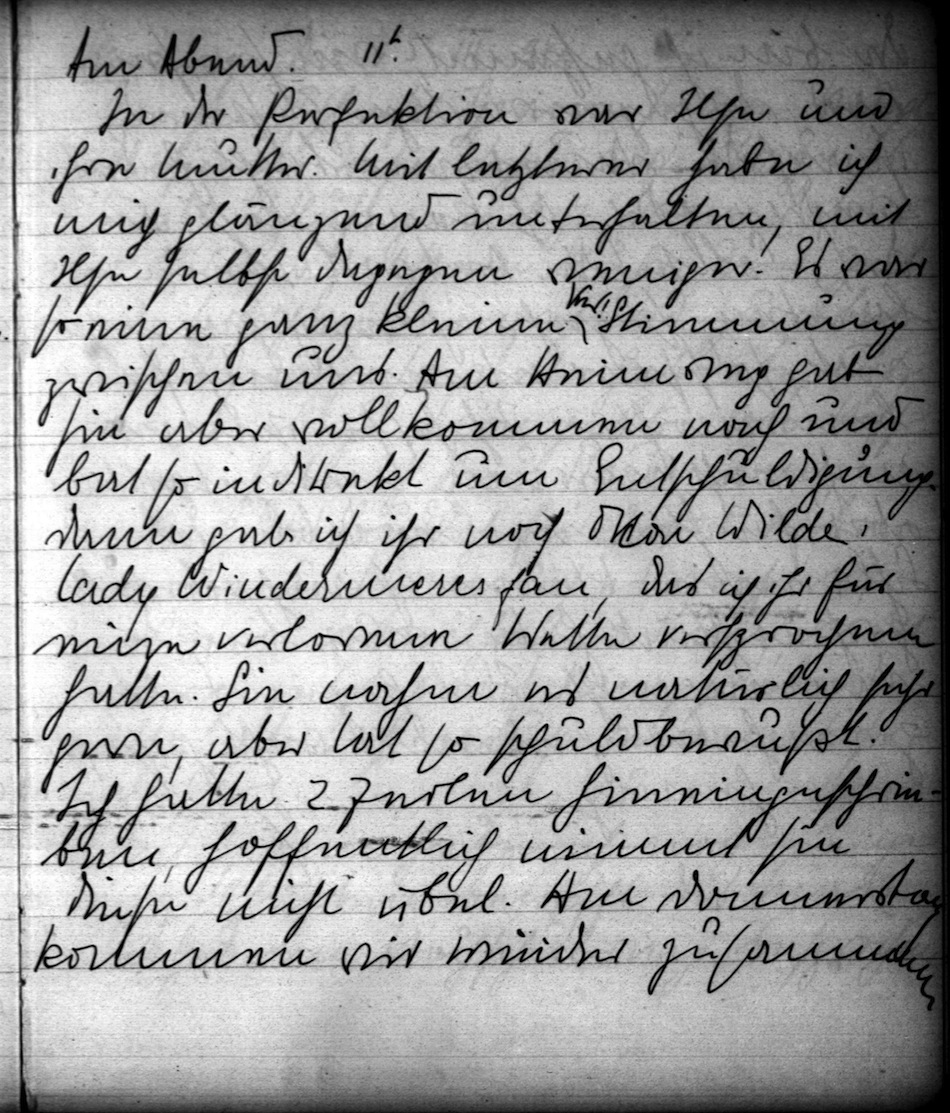 Am Abend. 11h.
In der Perfektion war Ilse und
ihre Mutter. Mit letzterer habe ich
mich glänzend unterhalten, mit
Ilse selbst dagegen weniger. Es war
so eine ganz kleine Ver! Stimmung
zwischen uns. Am Heimweg gab
sie aber vollkommen nach und
bat so indirekt um Entschuldigung.
dann gab ich ihr noch Oskar Wilde,
Lady Windermeres fan, das ich ihr für
meine verlorene Wette versprochen
hatte. Sie nahm es natürlich sehr
gern, aber tat so schuldbewußt.
Ich hatte 2 Zeilen hineingeschrie-
ben, hoffentlich nimmt sie
diese nicht übel. Am Donnerstag
kommen wir wieder zusammen